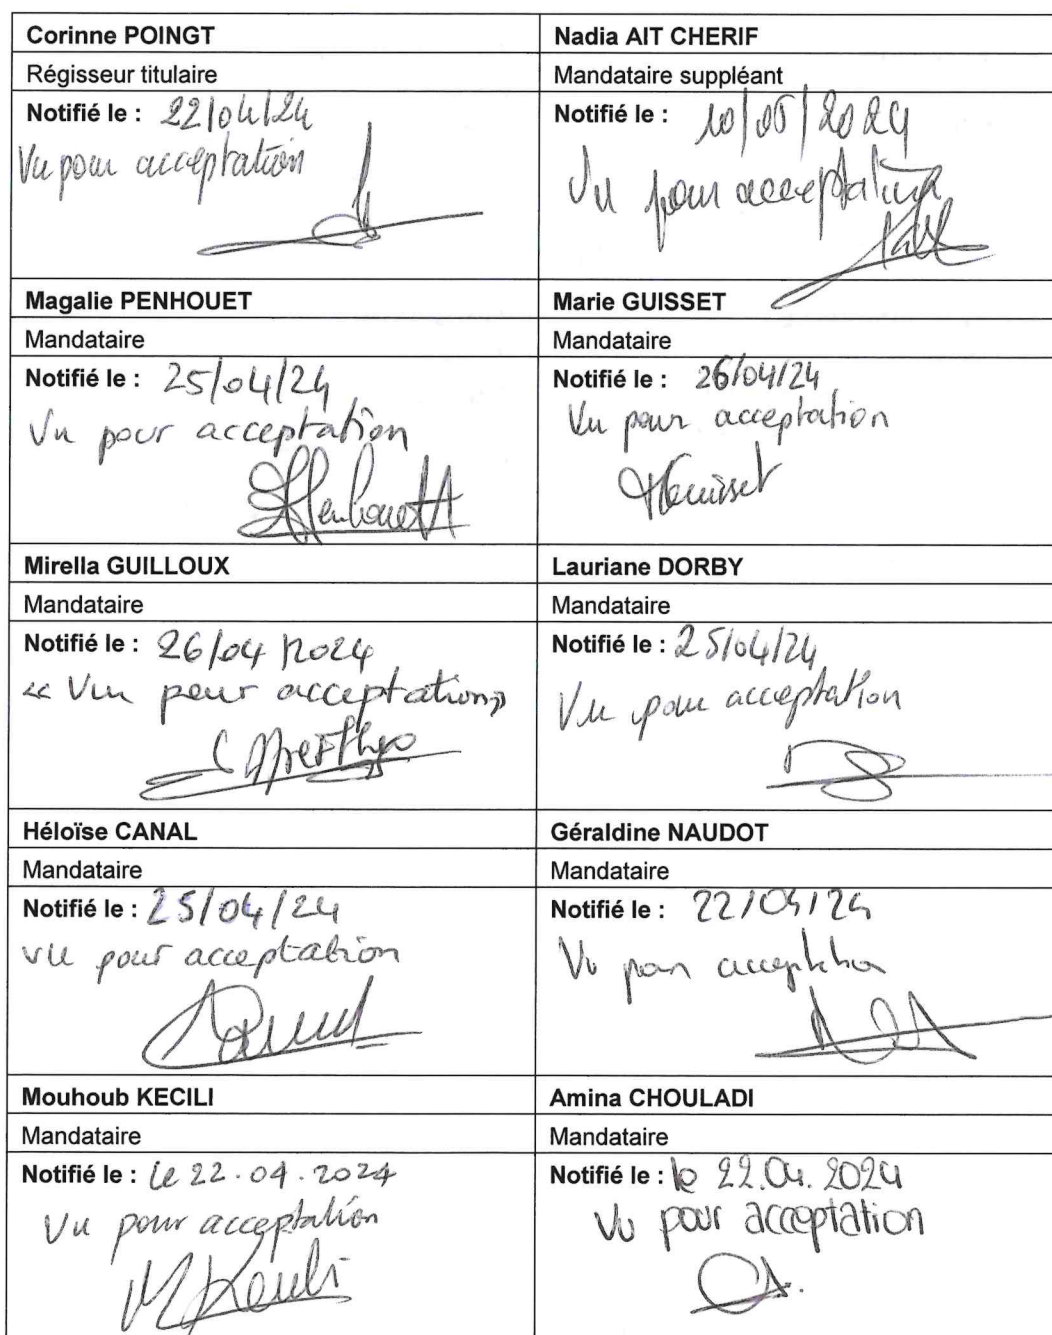 Corinne POINGT
Nadia AIT CHERIF
Régisseur titulaire
Mandataire suppléant
Notifié le : 22/04/24
Vu pour acceptation
Notifié le : 10/05/2024
Vu pour acceptation
Magalie PENHOUET
Marie GUISSET
Mandataire
Mandataire
Notifié le : 25/04/24
Vu pour acceptation
Penhouet
Notifié le : 26/04/24
Vu pour acceptation
Guisset
Mirella GUILLOUX
Lauriane DORBY
Mandataire
Mandataire
Notifié le : 26/04/2024
« Vu pour acceptation »
Notifié le : 25/04/24
Vu pour acceptation
Héloïse CANAL
Géraldine NAUDOT
Mandataire
Mandataire
Notifié le : 25/04/24
vu pour acceptation
Notifié le : 22/04/24
Vu pour acceptation
Mouhoub KECILI
Amina CHOULADI
Mandataire
Mandataire
Notifié le : le 22.04.2024
Vu pour acceptation
Notifié le : le 22.04.2024
Vu pour acceptation